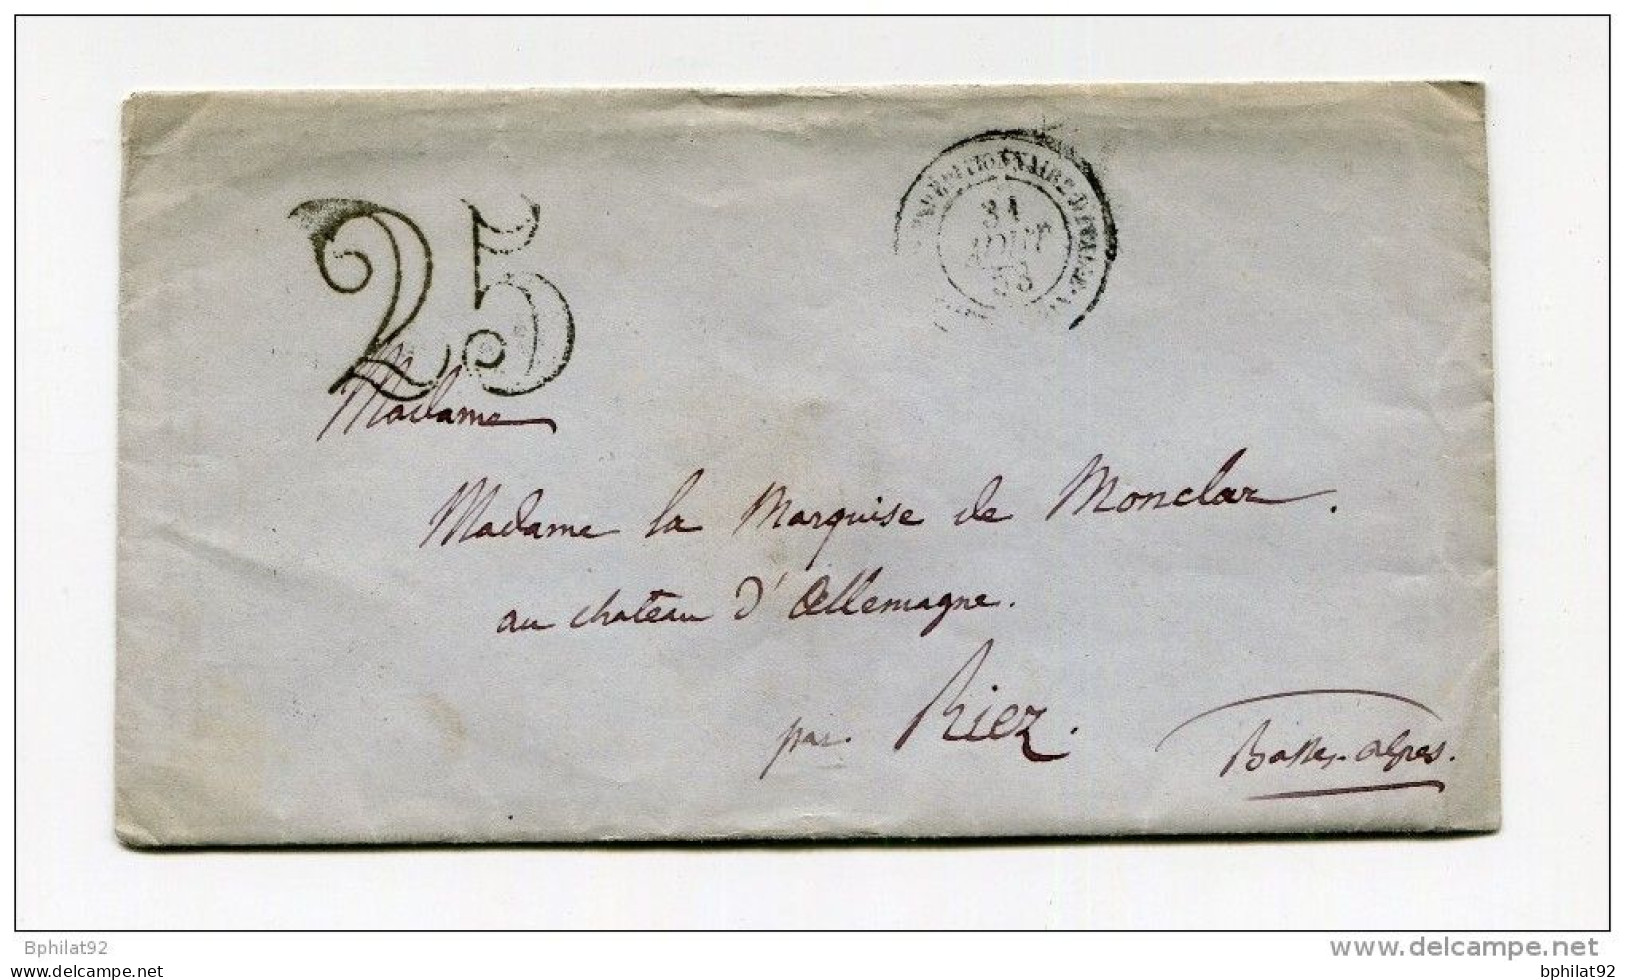 25
EXPEDITIONNAIRE D'ITALIE
31
AOUT
53
Madame
Madame la Marquise de Monclar.
au chateau d'Allemagne.
par Riez.
Basses-alpes.
Bphilat92
www.delcampe.net
Bphilat92
Bphilat92